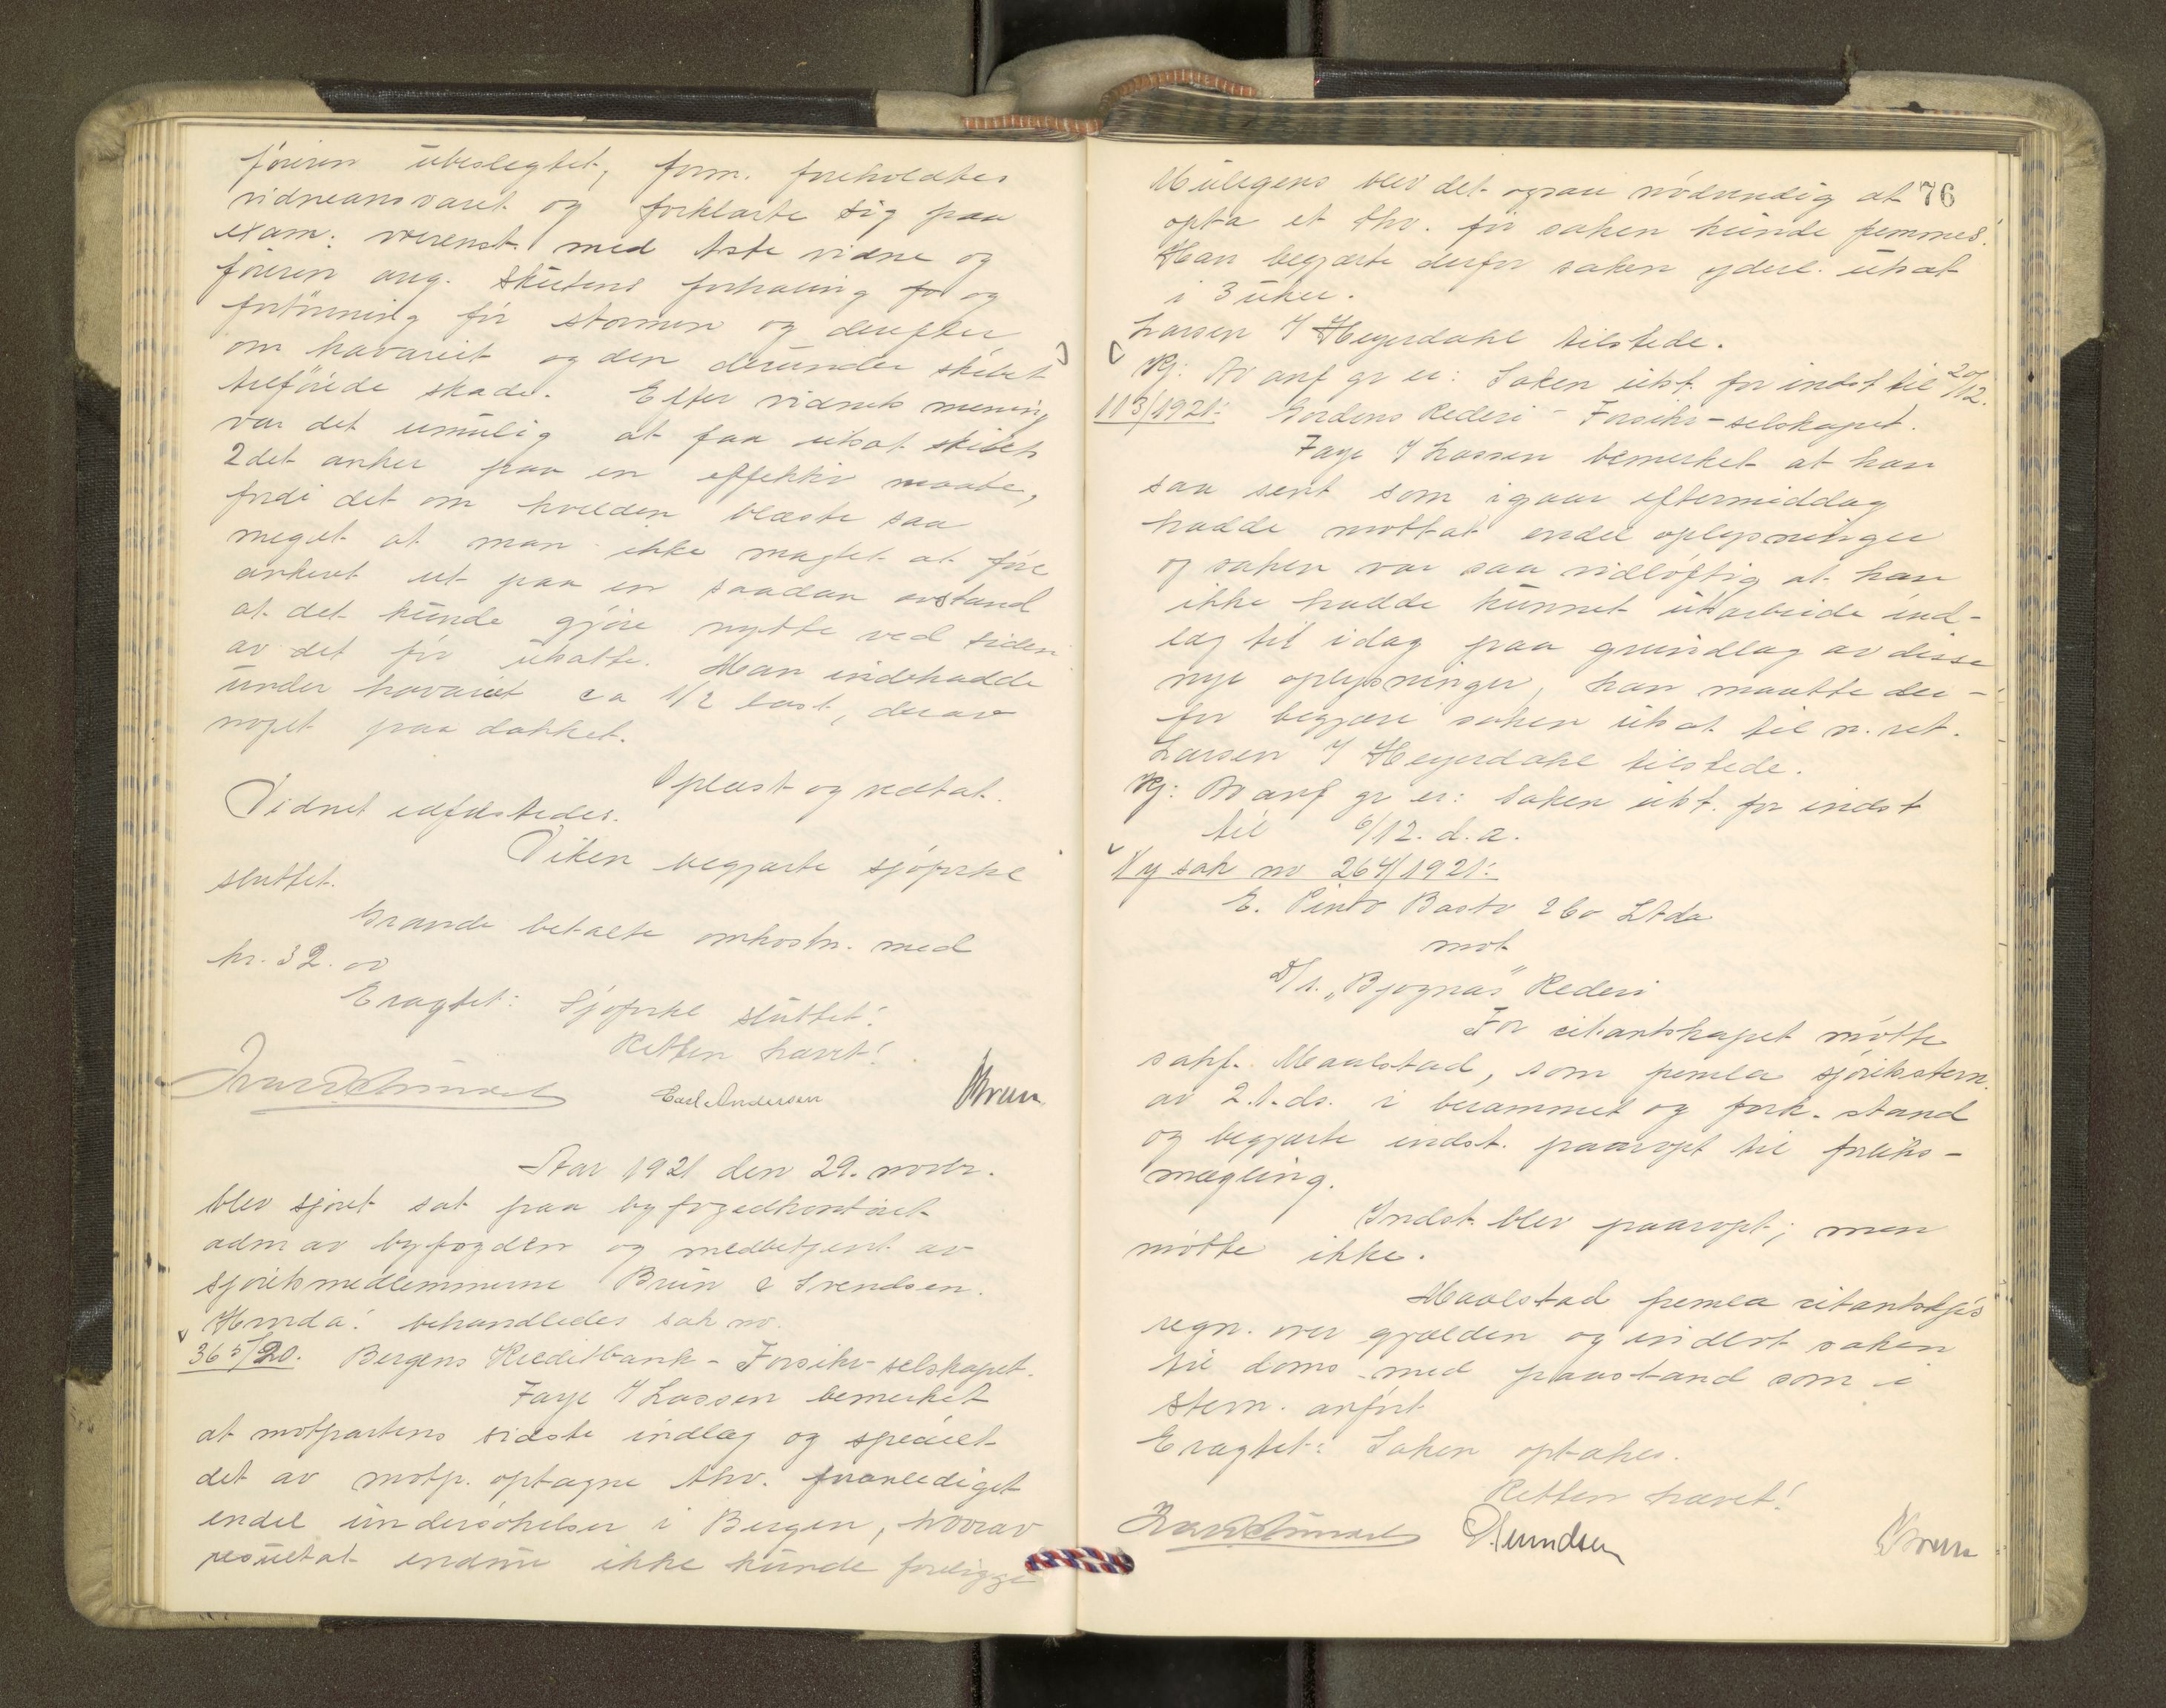 føreren ubeslegtet, form. foreholdtes
vidneansvaret og forklarte sig paa
exam: overenst. med 1ste vidne og
føreren ang. skutens forhaling og
fortøining før stormen og derefter
om havariet og den derunder skibet
tilføiede skade. Efter vidnets mening
var det umulig at faa utsat skibets
2det anker paa en effektiv maate,
fordi det om kvelden blæste saa
meget at man ikke magtet at føre
ankeret ut paa en saadan avstand
at det kunde gjøre nytte ved siden
av det før utsatte. Man indehadde
under havariet ca 1/2 last, derav
noget paa dækket.
Oplæst og vedtat.
Vidnet edfæstedes.
Viken begjærte sjøforkl
sluttet.
Grande betalte omkostn. med
kr. 32.00
Eragtet: Sjøforkl sluttet!
Retten hævet!
Carl Andersen Brun
Aar 1921 den 29. novbr.
blev sjøret sat paa byfogedkontoret
adm av byfogden og medbetjent av
sjøretsmedlemmerne Brun & Svendsen.
Hvorda! behandledes sak nr.
365/20. Bergens Kreditbank - Forsikr-selskapet.
Faye f/ Lassen bemerket
at motpartens sidste indlæg og specielt
det av motp. optagne thv. foranlediget
endel undersøkelser i Bergen, hvorav
resultat endnu ikke kunde foreligge
76
Muligens blev det ogsaa nødvendig at
opta et thv. før saken kunde fremmes!
Han begjærte derfor saken yderl. utsat
i 3 uker.
Larsen f/ Heyerdahl tilstede.
Kj: Av anf gr er: Saken utst. for indst til 20/12.
113/1921: Gordens Rederi - Forsikr-selskapet.
Faye f/ Lassen bemerket at han
saa sent som igaar eftermiddag
hadde mottat endel oplysninger
og saken var saa vidløftig at han
ikke hadde kunnet utarbeide ind-
læg til idag paa grundlag av disse
nye oplysninger, han maatte der-
for begjære saken utsat til n. ret.
Larsen f/ Heyerdahl tilstede.
Kj: Av anf gr er: Saken utst. for indst
til 6/12. d.a.
Ny sak nr 264/1921:
E. Pinto Basto & Co Ltda
mot
D/s. "Bjognæs" Rederi
For citantskapet møtte
sakf. Maalstad, som fremla sjøretsstevn.
av 2. f. ds. i berammet og fork. stand
og begjærte indst. paaropt til forliks-
mægling.
Indst. blev paaropt; men
møtte ikke.
Maalstad fremla citantskps
regn. over gjælden og indlot saken
til doms med paastand som i
stevn. anført
Eragtet: Saken optakes.
Retten hævet!
Svendsen Brun